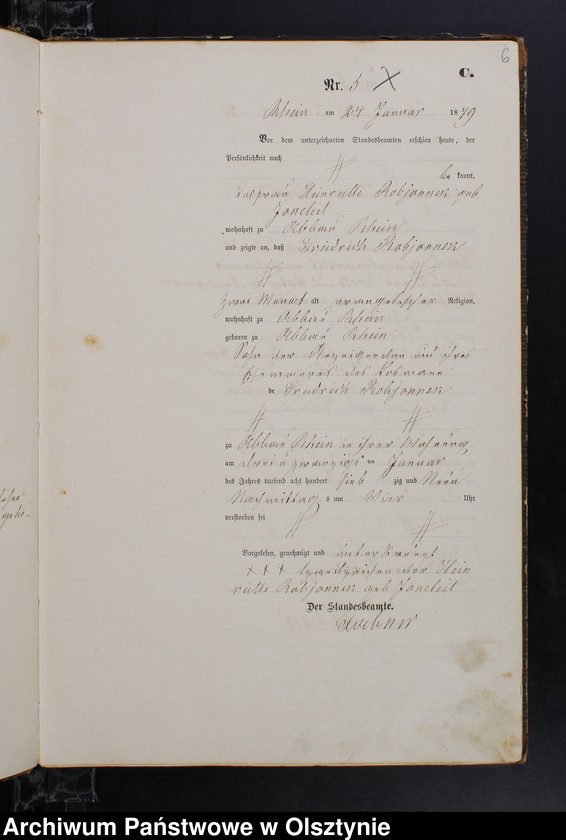 6
C.
Nr. 5
Rhein am 24 Januar 1879
Vor dem unterzeichneten Standesbeamten erschien heute, der
Persönlichkeit nach
be kannt,
Henriette Robjonnek geb.
Joneleit
wohnhaft zu Abbau Rhein
und zeigte an, daß Friedrich Robjonnek
zwei Monat alt evangelischer Religion,
wohnhaft zu Abbau Rhein
geboren zu Abbau Rhein
Sohn der Anzeigenden und ihres
Ehemannes des Losmann
de Friedrich Robjonnek
zu Abbau Rhein in ihrer Wohnung,
am zwanzigs ten Januar
des Jahrs tausend acht hundert sieb zig und Neun
Nachmittag s um Vier Uhr
verstorben sei
Vorgelesen, genehmigt und unterkreuzt
+ + + Handzeichen der Hein
riette Robjonnek geb Joneleit
Der Standesbeamte.
Archiwum Państwowe w Olsztynie